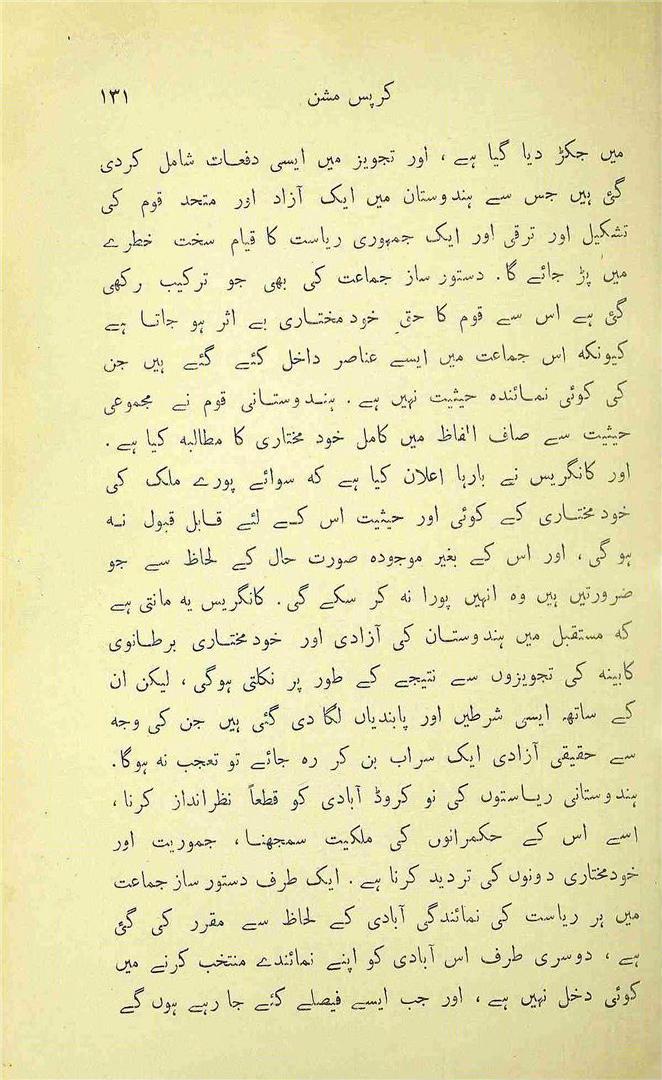 کرپس مشن ۱۳۱
میں جکڑ دیا گیا ہے ، اور تجویز میں ایسی دفعات شامل کردی
گئی ہیں جس سے ہندوستان میں ایک آزاد اور متحد قوم کی
تشکیل اور ترقی اور ایک جمہوری ریاست کا قیام سخت خطرے
میں پڑ جائے گا۔ دستور ساز جماعت کی بھی جو ترکیب رکھی
گئی ہے اس سے قوم کا حقِ خود مختاری بے اثر ہو جاتا ہے
کیونکہ اس جماعت میں ایسے عناصر داخل کئے گئے ہیں جن
کی کوئی نمائندہ حیثیت نہیں ہے ۔ ہندوستانی قوم نے مجموعی
حیثیت سے صاف الفاظ میں کامل خود مختاری کا مطالبہ کیا ہے ۔
اور کانگریس نے بارہا اعلان کیا ہے کہ سوائے پورے ملک کی
خود مختاری کے کوئی اور حیثیت اس کے لئے قابل قبول نہ
ہو گی ، اور اس کے بغیر موجودہ صورت حال کے لحاظ سے جو
ضرورتیں ہیں وہ انہیں پورا نہ کر سکے گی۔ کانگریس یہ مانتی ہے
کہ مستقبل میں ہندوستان کی آزادی اور خود مختاری برطانوی
کابینہ کی تجویزوں سے نتیجے کے طور پر نکلتی ہوگی ، لیکن ان
کے ساتھ ایسی شرطیں اور پابندیاں لگا دی گئی ہیں جن کی وجہ
سے حقیقی آزادی ایک سراب بن کر رہ جائے تو تعجب نہ ہوگا۔
ہندوستانی ریاستوں کی نو کروڈ آبادی کو قطعاً نظرانداز کرنا ،
اسے اس کے حکمرانوں کی ملکیت سمجھنا، جموریت اور
خودمختاری دونوں کی تردید کرنا ہے ۔ ایک طرف دستور ساز جماعت
میں ہر ریاست کی نمائندگی آبادی کے لحاظ سے مقرر کی گئی
ہے ، دوسری طرف اس آبادی کو اپنے نمائندے منتخب کرنے میں
کوئی دخل نہیں ہے ، اور جب ایسے فیصلے کئے جا رہے ہوں گے